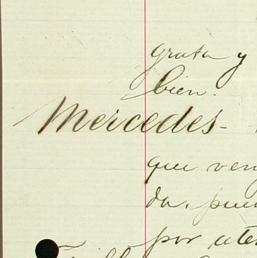 grata y
bien.
Mercedes-
que ven
da, pue
por ate